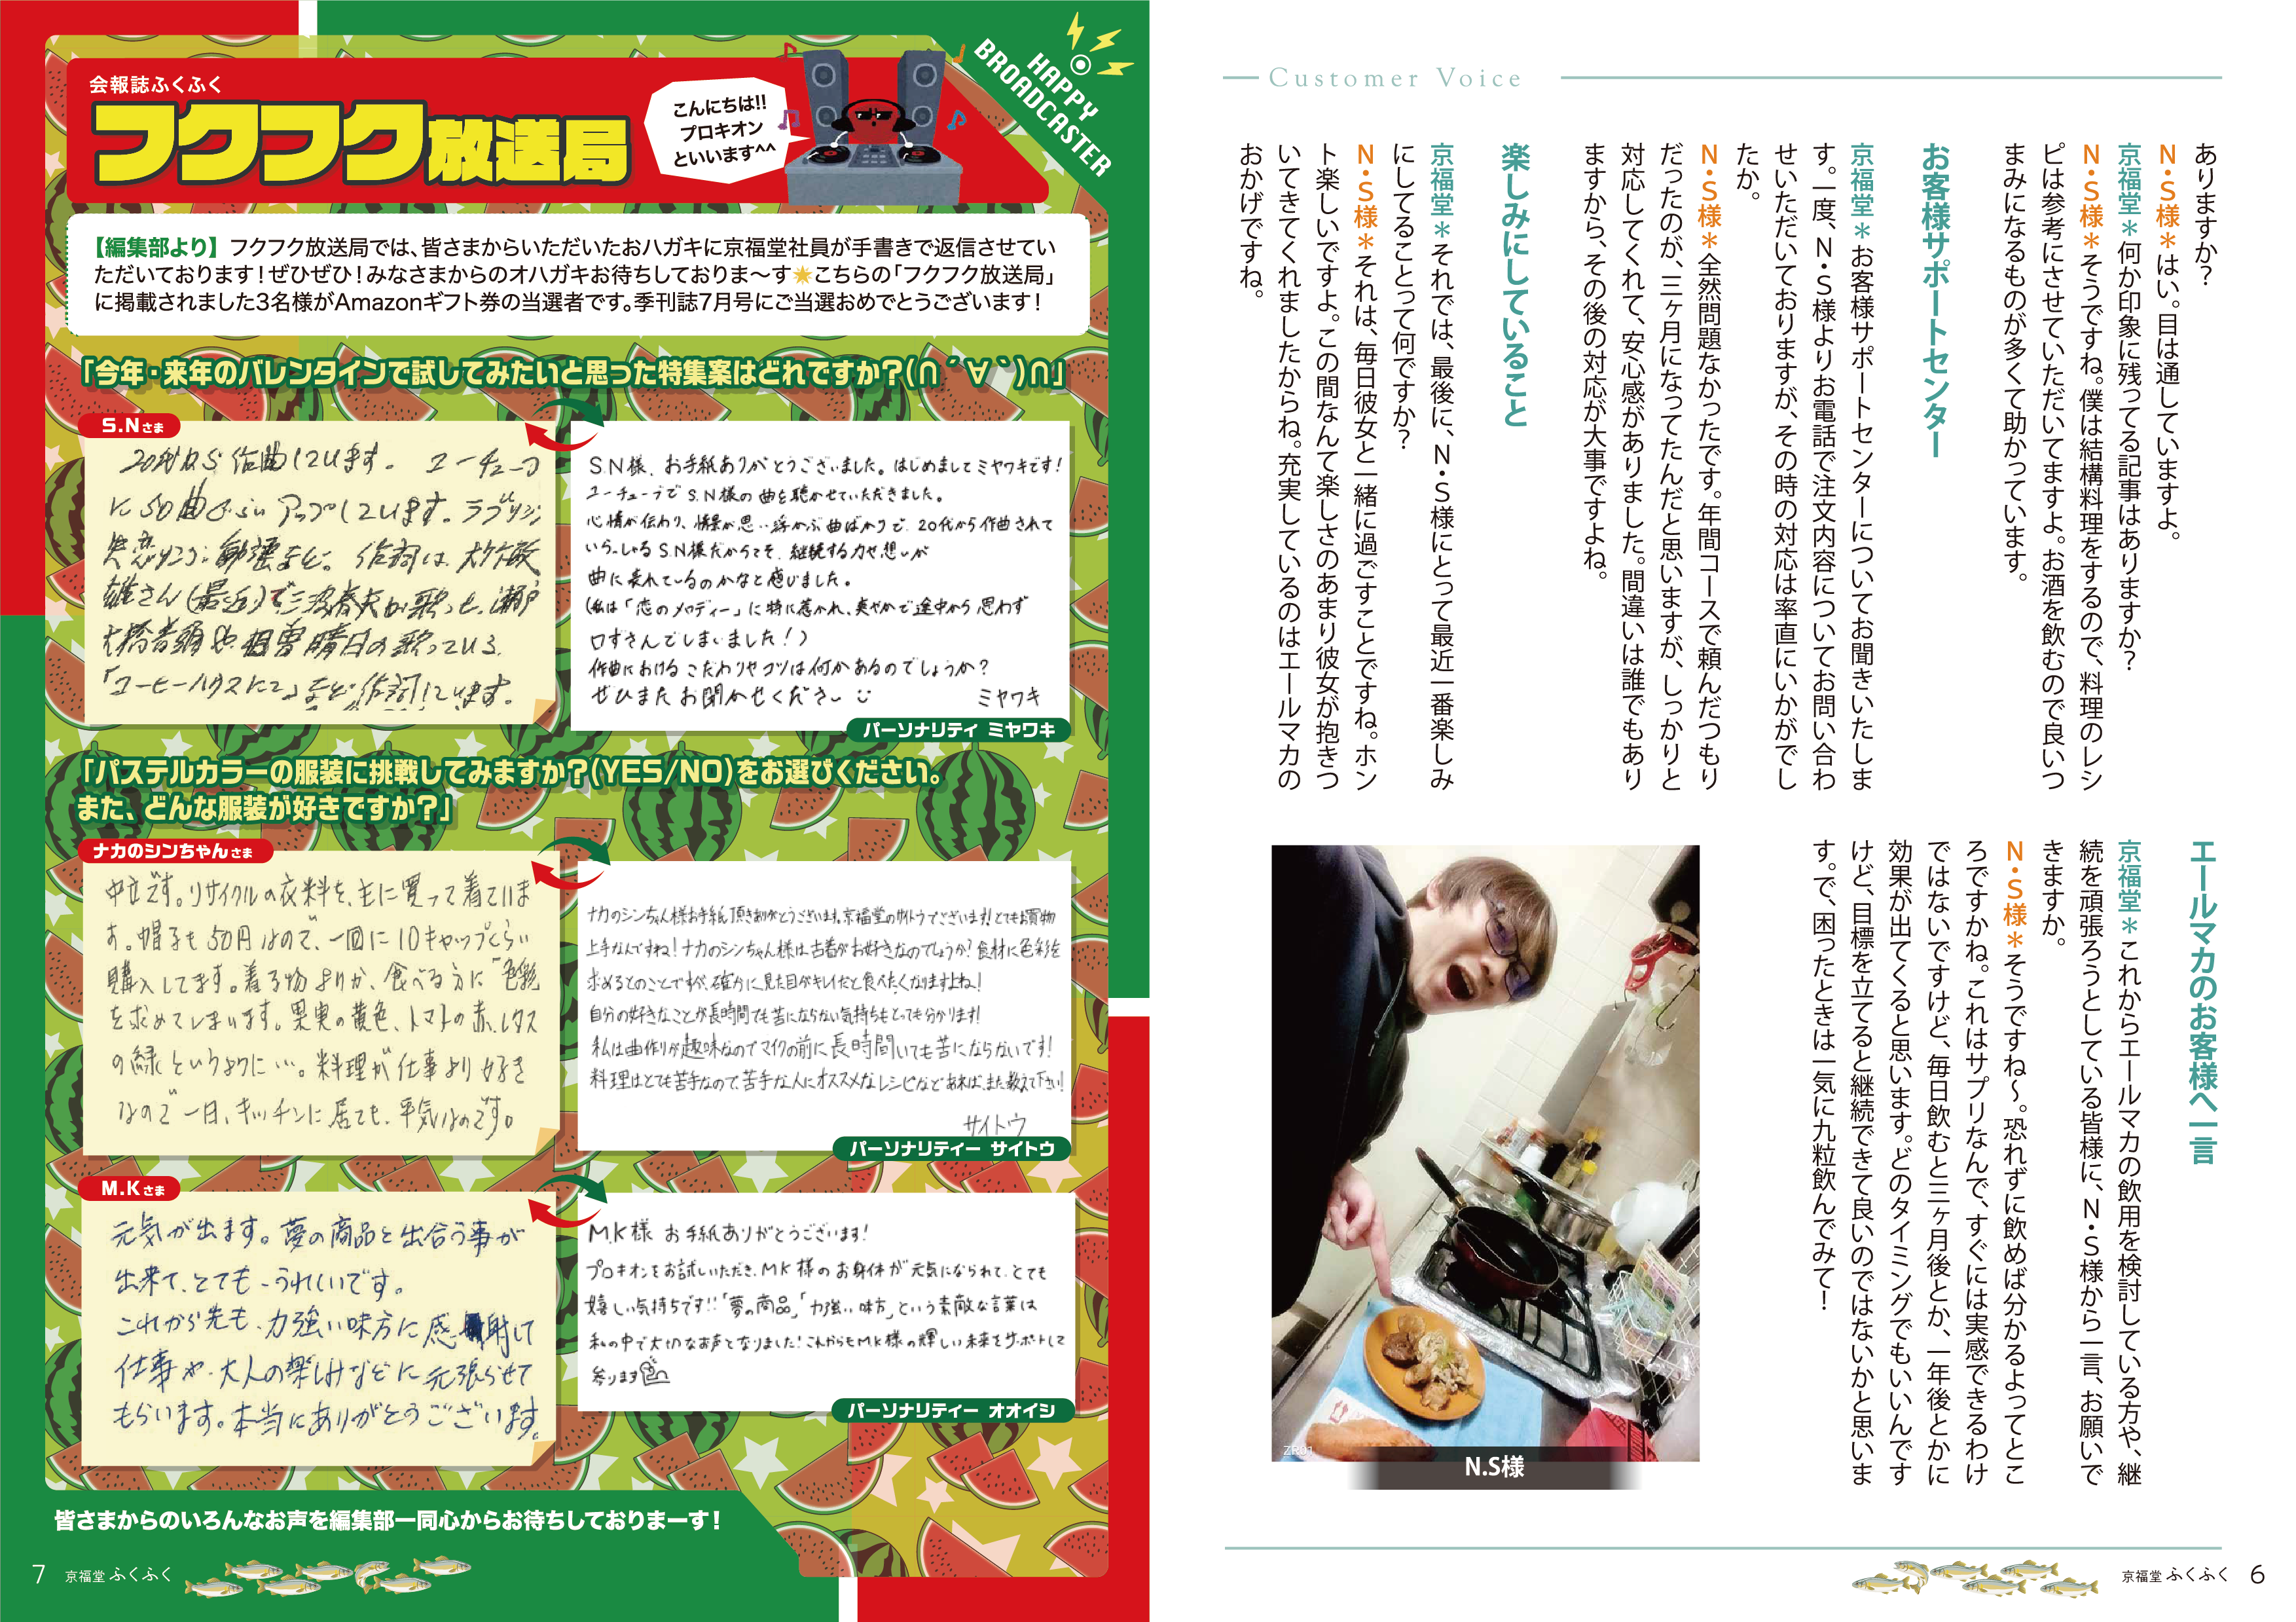 Customer Voice
ありますか？
N・S様＊はい。目は通していますよ。
京福堂＊何か印象に残ってる記事はありますか？
N・S様＊そうですね。僕は結構料理をするので、料理のレシ
ピは参考にさせていただいてますよ。お酒を飲むので良いつ
まみになるものが多くて助かっています。
お客様サポートセンター
京福堂＊お客様サポートセンターについてお聞きいたしま
す。一度、N・S様よりお電話で注文内容についてお問い合わ
せいただいておりますが、その時の対応は率直にいかがでし
たか。
N・S様＊全然問題なかったです。年間コースで頼んだつもり
だったのが、三ヶ月になってたんだと思いますが、しっかりと
対応してくれて、安心感がありました。間違いは誰でもあり
ますから、その後の対応が大事ですよね。
楽しみにしていること
京福堂＊それでは、最後に、N・S様にとって最近一番楽しみ
にしてることって何ですか？
N・S様＊それは、毎日彼女と一緒に過ごすことですね。ホン
ト楽しいですよ。この間なんて楽しさのあまり彼女が抱きつ
いてきてくれましたからね。充実しているのはエールマカの
おかげですね。
エールマカのお客様へ一言
京福堂＊これからエールマカの飲用を検討している方や、継
続を頑張ろうとしている皆様に、N・S様から一言、お願いで
きますか。
N・S様＊そうですね〜。恐れずに飲めば分かるよってとこ
ろですかね。これはサプリなんで、すぐには実感できるわけ
ではないですけど、毎日飲むと三ヶ月後とか、一年後とかに
効果が出てくると思います。どのタイミングでもいいんです
けど、目標を立てると継続できて良いのではないかと思いま
す。で、困ったときは一気に九粒飲んでみて！
ZR01
N.S様
京福堂 ふくふく 6
会報誌ふくふく
フクフク放送局
こんにちは!!
プロキオン
といいます^^
HAPPY
BROADCASTER
【編集部より】フクフク放送局では、皆さまからいただいたおハガキに京福堂社員が手書きで返信させてい
ただいております！ぜひぜひ！みなさまからのオハガキお待ちしておりま〜す🌟こちらの「フクフク放送局」
に掲載されました3名様がAmazonギフト券の当選者です。季刊誌7月号にご当選おめでとうございます！
「今年・来年のバレンタインで試してみたいと思った特集案はどれですか？(∩´∀｀)∩」
S.Nさま
20代から作曲しています。ユーチューブ
に50曲ぐらいアップしています。ラブソング
失恋ソング
作詞は大竹敏
雄さん(最近)で三波春夫が歌った、瀬戸
の歌っている
「コーヒーハウスにて」など作詞しています。
S.N様、お手紙ありがとうございました。はじめましてミヤワキです！
ユーチューブでS.N様の曲を聴かせていただきました。
心情が伝わり、情景が思い浮かぶ曲ばかりで、20代から作曲されて
いらっしゃるS.N様だからこそ、継続する力や想いが
曲に表れているのかなと感じました。
(私は「恋のメロディー」に特に惹かれ、爽やかで途中から思わず
口ずさんでしまいました！)
作曲におけるこだわりやコツは何かあるのでしょうか？
ぜひまたお聞かせください ミヤワキ
パーソナリティ ミヤワキ
「パステルカラーの服装に挑戦してみますか？(YES/NO)をお選びください。
また、どんな服装が好きですか？」
ナカのシンちゃんさま
中立です。リサイクルの衣料を、主に買って着ていま
す。帽子も50円なので、一回に10キャップくらい
購入してます。着る物よりか、食べる方に“色彩
を求めてしまいます。果実の黄色、トマトの赤、レタス
の緑というように…。料理が仕事より好き
なので一日、キッチンに居ても、平気なのです。
ナカのシンちゃん様お手紙頂きありがとうございます。京福堂のサイトウでございます！とてもお買物
上手なんですね！ナカのシンちゃん様は古着がお好きなのでしょうか？食材に色彩を
求めるとのことですが、確かに見た目がキレイだと食べたくなりますよね！
自分の好きなことが長時間でも苦にならない気持ちもとっても分かります！
私は曲作りが趣味なのでマイクの前に長時間いても苦にならないです！
料理はとても苦手なので、苦手な人にオススメなレシピなどあれば、また教えて下さい！
サイトウ
パーソナリティー サイトウ
M.Kさま
元気が出ます。夢の商品と出合う事が
出来て、とても、うれしいです。
これから先も、力強い味方に感謝して
仕事や、大人の楽しみなどに元張らせて
もらいます。本当にありがとうございます。
M.K様 お手紙ありがとうございます！
プロキオンをお試しいただき、M.K様のお身体が元気になられて、とても
嬉しい気持ちです!!「夢の商品」「力強い味方」という素敵な言葉は
私の中で大切なお声となりました！これからもM.K様の輝しい未来をサポートして
参ります
パーソナリティー オオイシ
皆さまからのいろんなお声を編集部一同心からお待ちしておりまーす！
7 京福堂 ふくふく